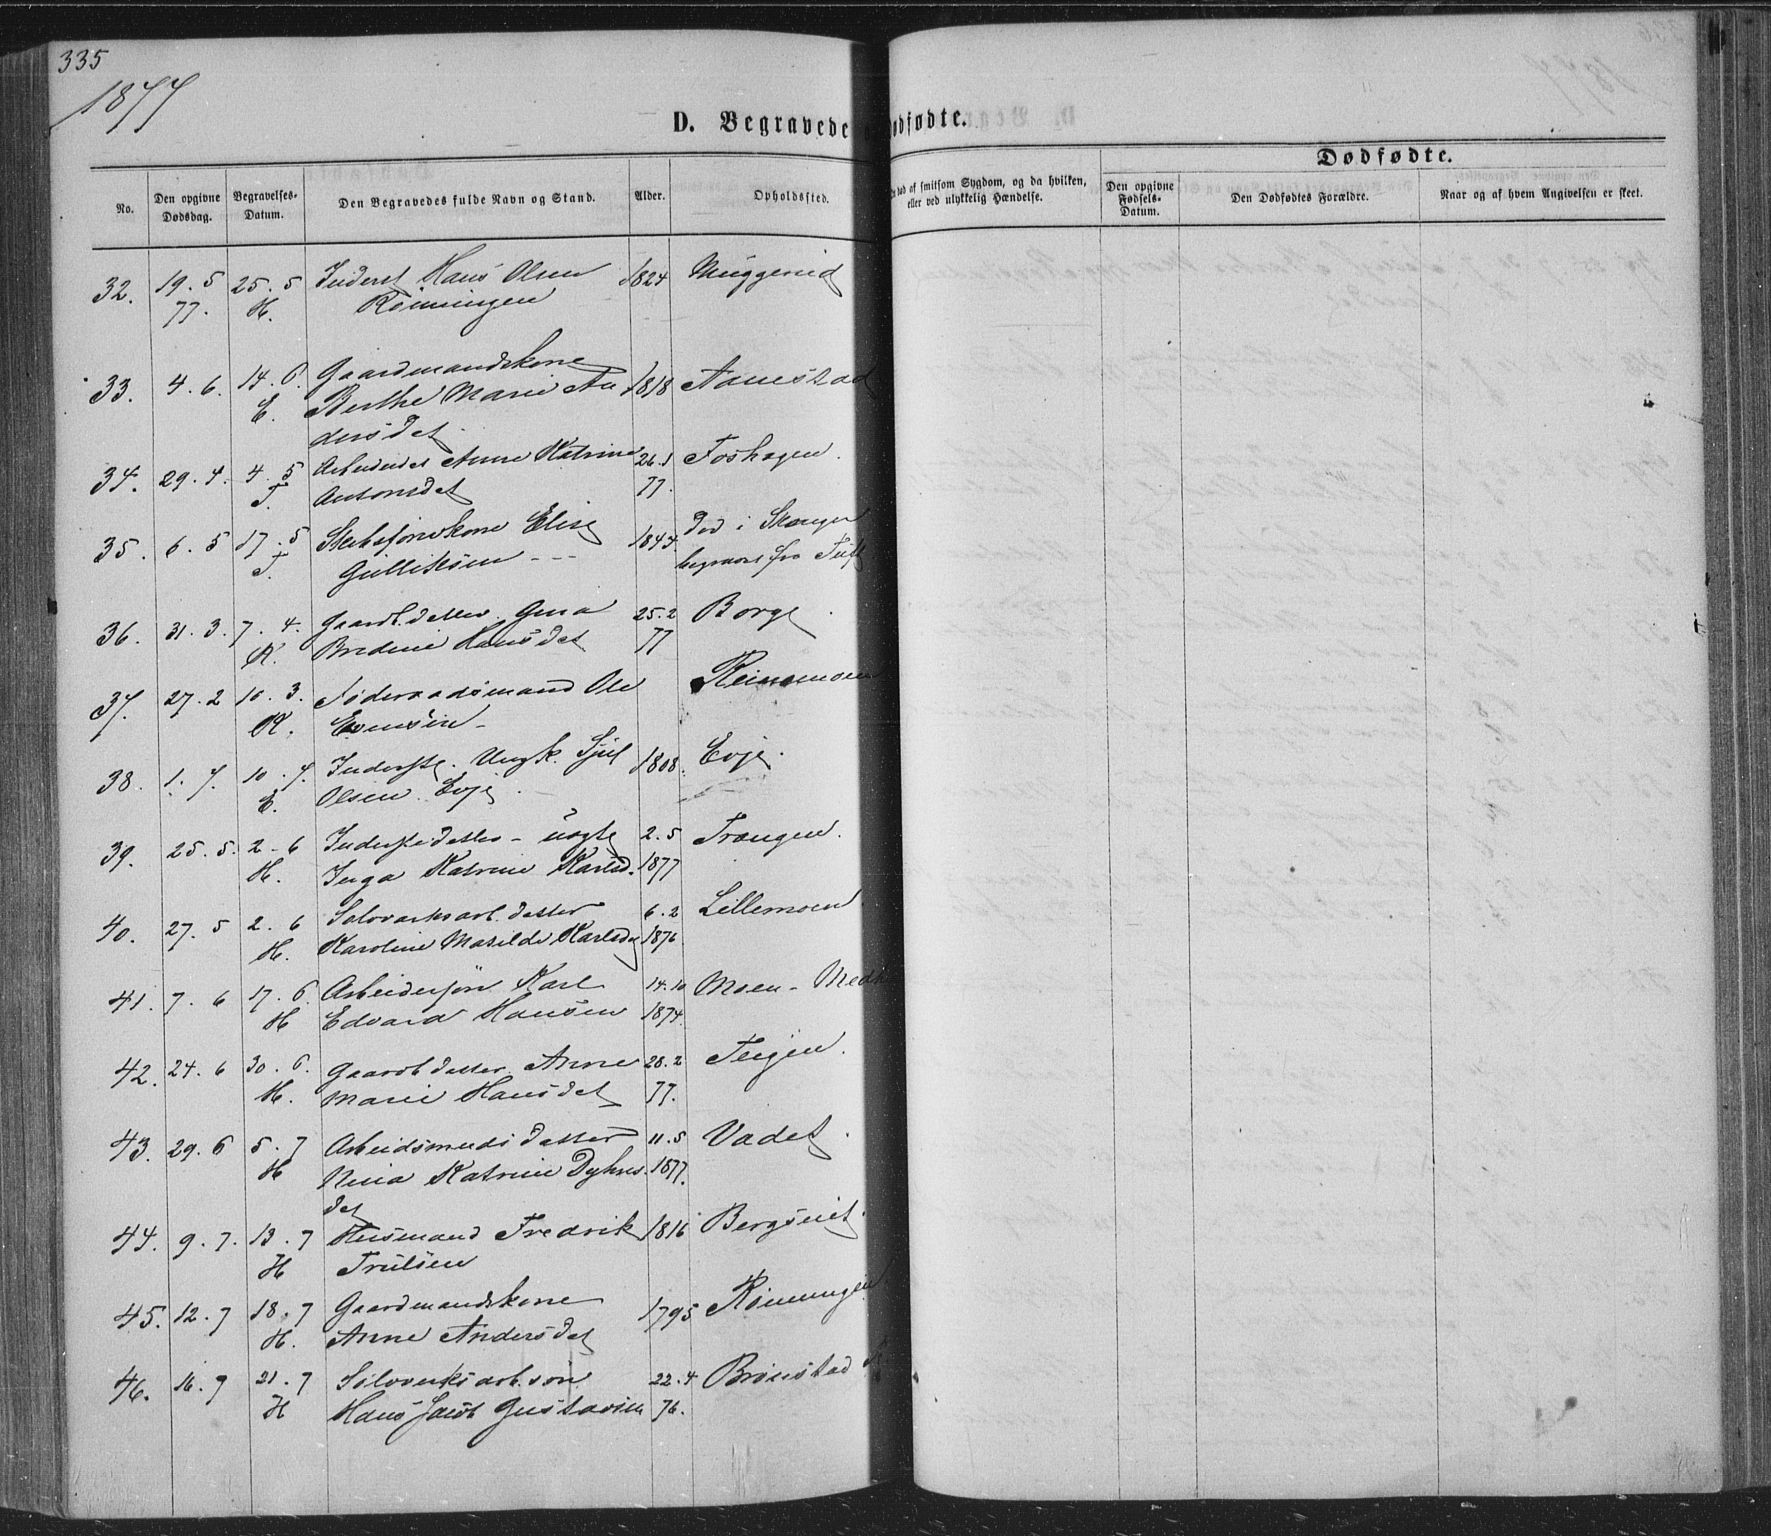 335
1877
D. Begravede o
ødfødte.
Dødfødte.
No.
Den opgivne Dødsdag.
Begravelses-Datum.
Den Begravedes fulde Navn og Stand.
Alder.
Opholdssted.
død af smitsom Sygdom, og da hvilken, eller ved ulykkelig Hændelse.
Den opgivne Fødsels-Datum.
Den Dødfødtes Forældre.
Naar og af hvem Angivelsen er skeet.
32. 19. 5 25. 5 Inderst Hans Olsen 1824 Muggerud
77. H. Rønningen
33. 4. 6. 14. 6. Gaardmandskone
E. Berthe Marie An 1818 Aanestad
dersdet
34. 29. 4. 4. 5 Arbeider Anne Katrine 26.1 Foshagen.
T. Antonsdet 77.
35. 6. 5 17. 5 Elise 1844. Død i
T. Gulliksen --- begravet fra
36. 31. 3. 7. 4. Gaardb. datter Gina 25.2 Borge.
K. Bredine Hansdet 77
37. 27. 2 10. 3. Føderaadsmand Ole
K. Evensen -
38. 1. 7. 10. 7. Inderste. Ungk. Sjul 1808. Evje.
E. Olsen Evje.
39. 25. 5. 2. 6 Inderstedatter - uægte 2. 5 Trangen.
H. Inga Katrine Karlsd. 1877
40. 27. 5 2. 6 Sølvverksarb. datter 6. 2 Lillemoen
H. Karoline Matilde Karlsd 1876
41. 7. 6 17. 6. Arbeidersøn Karl 14. 10 Moen -
H Edvard Hansen 1874.
42. 24. 6 30. 6. Gaardb datter Anne 28. 2 Teigen.
H. Marie Hansdet 77.
43. 29. 6 5. 7 Arbeidsmands datter 11. 5 Vadet.
H Nina Katrine 1877.
det
44. 9. 7. 13. 7 Husmand Fredrik 1816
H Trulsen
45. 12. 7 18. 7 Gaardmandskone 1795 Rønningen
H. Anne Andersdet
46. 16. 7 21. 7 Sølvverksarb. søn 22. 4 Brønstad
H Hans Jacob Gustavsen 76.